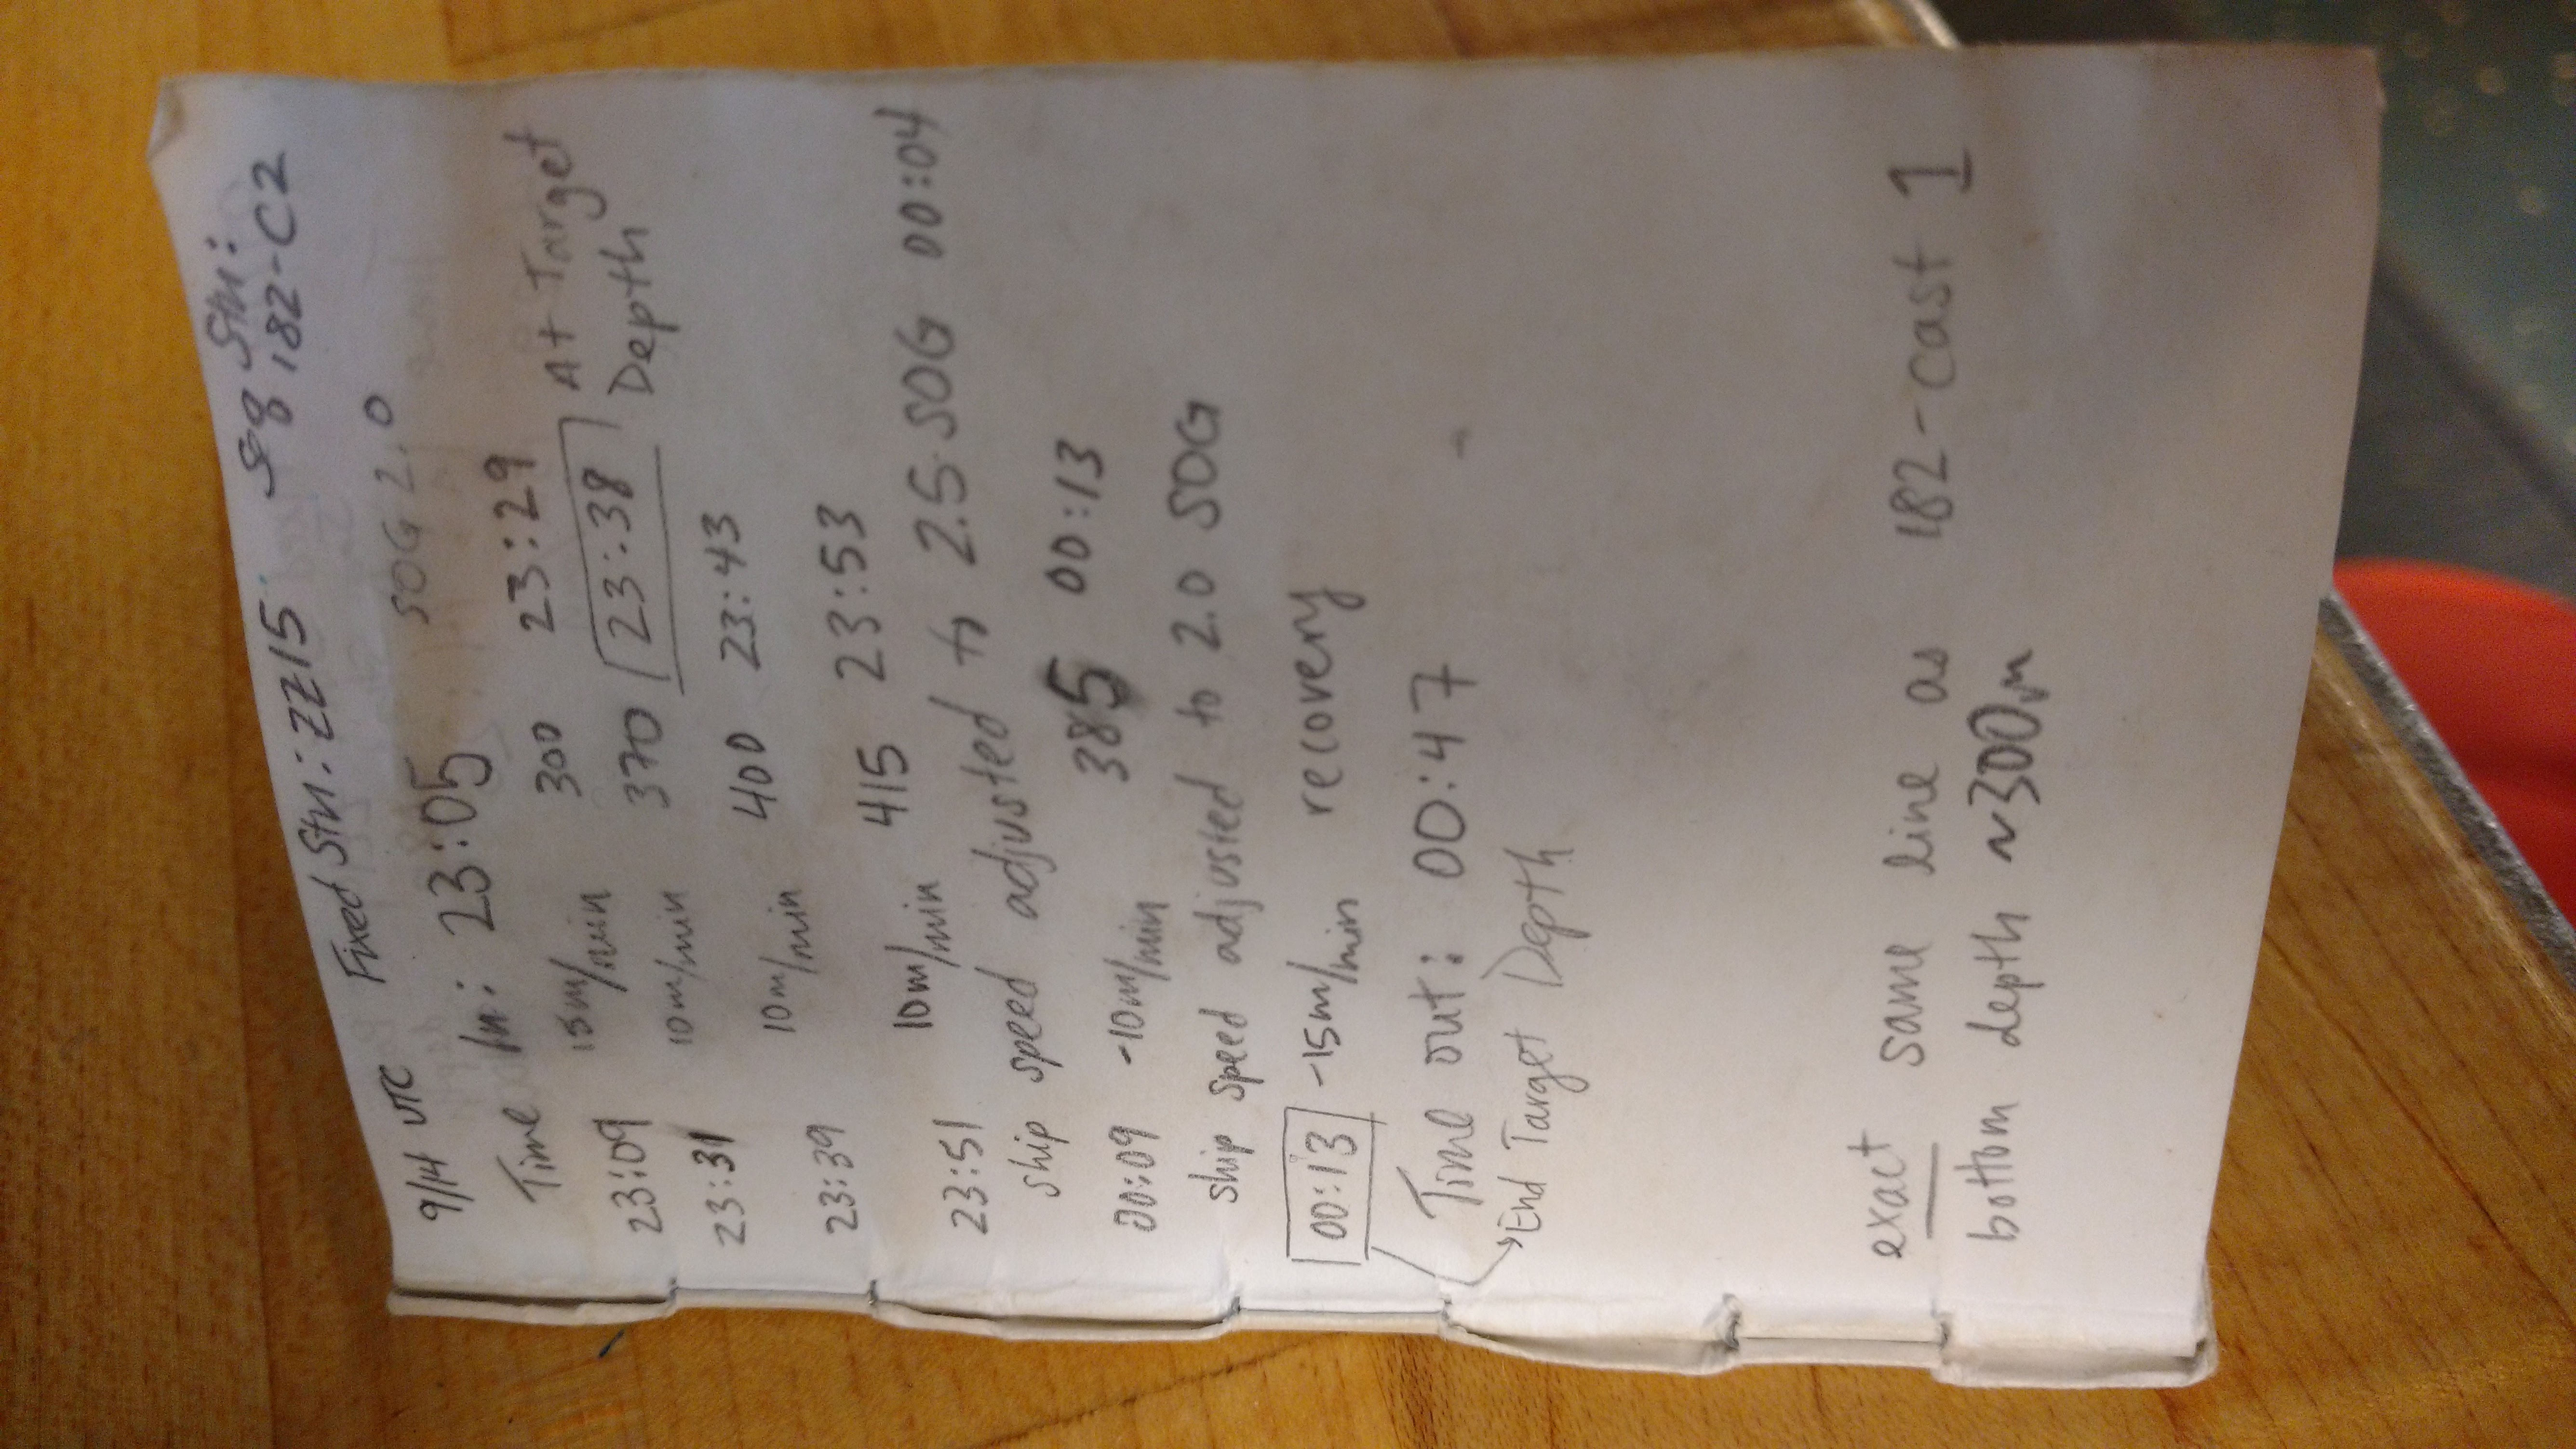 9/14 UTC Fixed Stn: ZZ15 Sq Stn: 182-C2
SOG 2.0
Time In: 23:05
23:09 15m/min 300 23:29
23:31 10m/min 370 23:38 At Target Depth
23:39 10m/min 400 23:43
23:51 10m/min 415 23:53
ship speed adjusted to 2.5 SOG 00:04
00:09 -10m/min 385 00:13
ship speed adjusted to 2.0 SOG
00:13 -15m/min recovery
Time out: 00:47
End Target Depth
exact same line as 182-cast 1
bottom depth ~300m